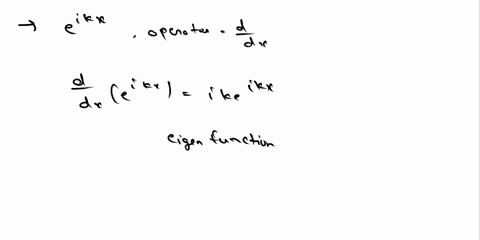 → e^{ikx} , operator = d/dx
d/dx (e^{ikx}) = ike^{ikx}
eigen function